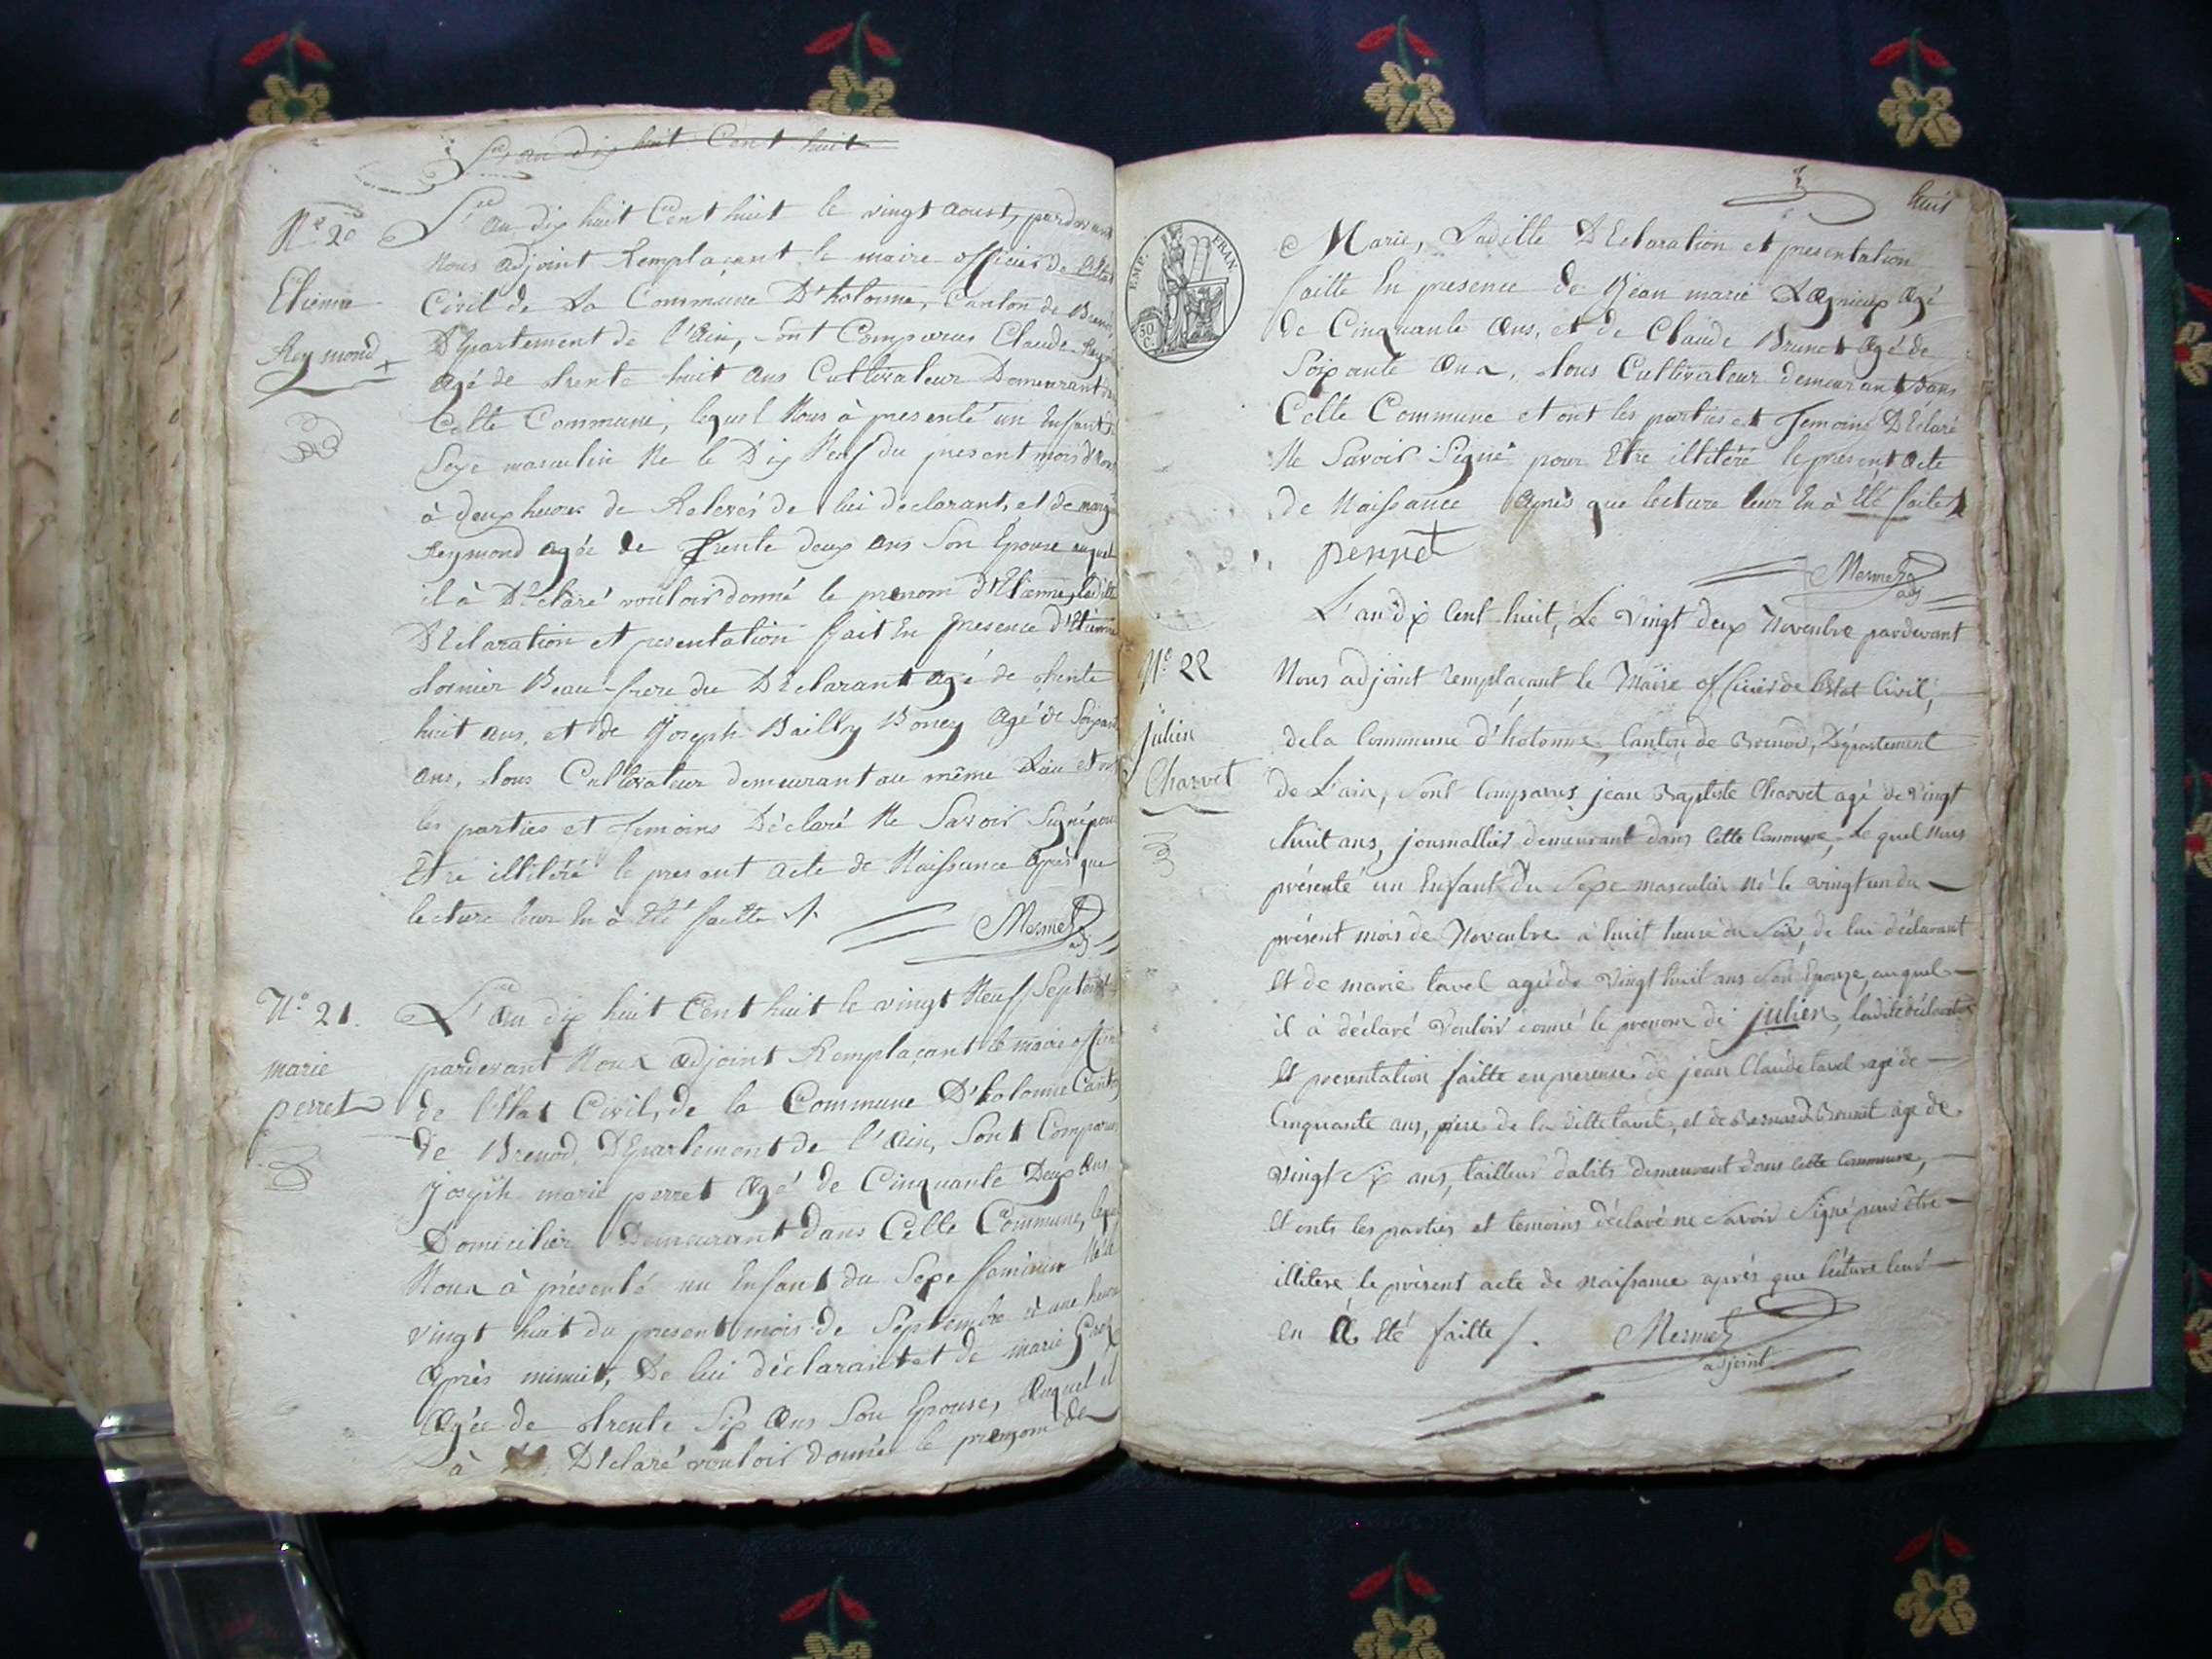 L'an dix huit Cent huit
N.º 20
Etienne
Reymond
L'an dix huit Cent huit le vingt aoust, pardevant
Nous adjoint Remplaçant le maire officier de l'Etat
Civil de La Commune D'hotonne, Canton de
DEpartement de l'Ain, sont Comparus Claude
agé de trente huit ans Cultivateur Demeurant
Cette Commune, lequel Nous à presenté un Enfant
Sexe masculin Né le Dix Neuf du present mois
à deux heures de Relevés de lui declarant, et de
Reymond agée de Trente deux ans Son Epouse auquel
il à DEclaré vouloir donné le prenom d'Etienne, Ladite
DEclaration et presentation fait En presence d'Etienne
Beau-frere du DEclarant agé de trente
huit ans, et de Joseph Bailly Agé de
ans, tous Cultivateur demeurant au même Lieu et
les parties et Temoins Déclaré Ne Savoir Signé pour
Etre illitéré le present acte de Naissance Après que
lecture leur En à Eté faitte /.
Mermet
adj
N.º 21.
marie
perret
L'an dix huit Cent huit le vingt Neuf Septembre
pardevant Nous Adjoint Remplaçant le maire officier
de l'Etat Civil, de la Commune D'hotonne Canton
de Brenod, DEpartement de l'Ain, Sont Comparus
Joseph marie perret Agé de Cinquante Deux ans
Domicilier Demeurant dans Cette Commune, lequel
Nous à présenté un Enfant du Sexe féminin Né le
vingt huit du present mois de Septembre à une heure
Après minuit, De lui déclarant et de marie
Agée de trente Six ans Son Epouse, Auquel il
à DEclaré vouloir donné le prenom de
huit
EMP. FRAN
50 C.
Marie, Laditte DEclaration et presentation
faitte En presence de Jean marie Agé
de Cinquante ans, et de Claude Brunet Agé de
Soixante Ans, tous Cultivateur demeurant Dans
Cette Commune et ont les parties et Temoins DEclaré
Ne Savoir Signé pour Etre illitéré le present Acte
de Naissance Après que lecture leur En à Eté faite /
perret
Mermet
adj
N.º 22
julien
Charvet
L'an dix Cent huit, Le vingt deux Novembre pardevant
Nous adjoint remplaçant le Maire officier de l'Etat Civil,
de la Commune d'hotonne, Canton de Brenod, Département
de L'ain, Sont Comparus jean Baptiste Charvet agé de Vingt
huit ans, journallier demeurant dans Cette Commune, Le quel Nous
présenté un Enfant Du Sexe masculin Né le vingt un du
présent mois de Novembre à huit heure du Soir, de lui déclarant
Et de marie tavel agée de Vingt huit ans Son Epouse, auquel
il à déclaré Vouloir donné le prenom de julien, ladite déclaration
Et presentation faitte en presence de jean Claude tavel agé de
Cinquante ans, pere de la ditte tavel, et de Bernard Brunet age de
vingt Six ans, tailleur dabits demeurant dans Cette Commune,
Et onts les parties et temoins déclaré ne Savoir Signé pour être
illitere, le présent acte de naissance aprés que lécture leur
en A été faitte /.
Mermet
adjoint